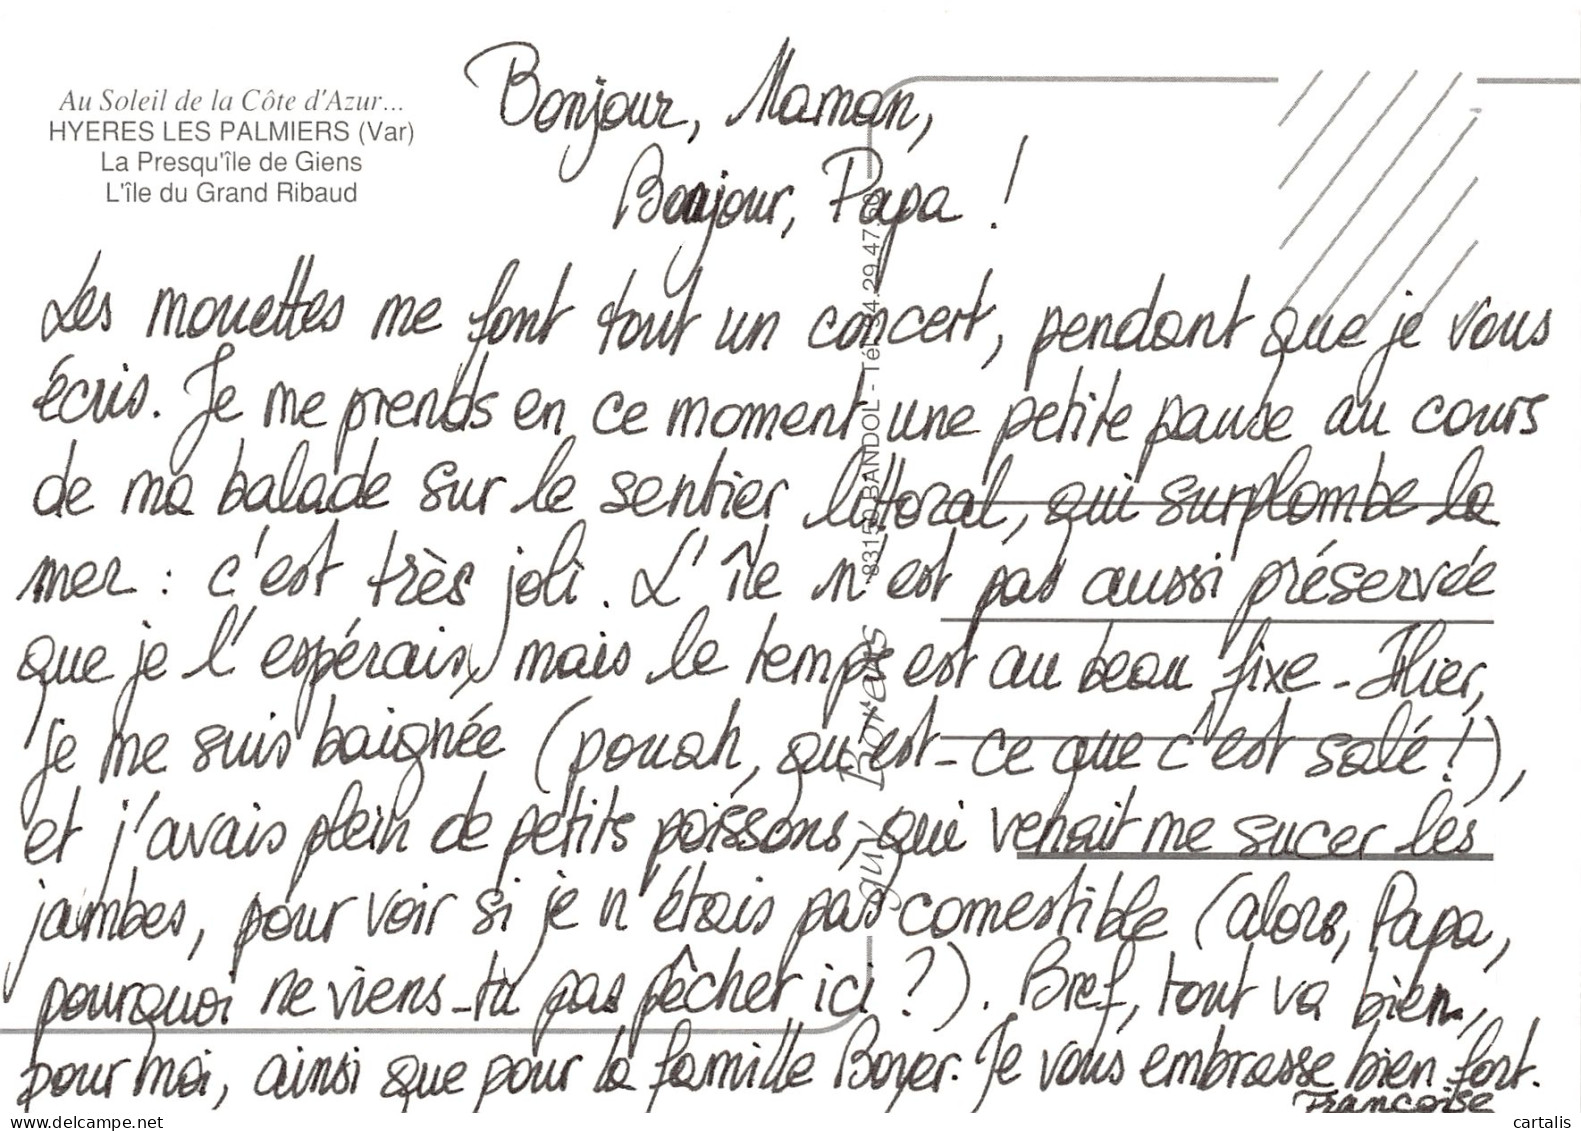 Au Soleil de la Côte d'Azur...
HYERES LES PALMIERS (Var)
La Presqu'île de Giens
L'île du Grand Ribaud
Bonjour, Maman,
Bonjour, Papa !
Les mouettes me font tout un concert, pendant que je vous
écris. Je me prends en ce moment une petite pause au cours
de ma balade sur le sentier littoral, qui surplombe la
mer : c'est très joli. L'île n'est pas aussi préservée
que je l'espérais, mais le temps est au beau fixe - Hier,
je me suis baignée (pouah, qu'est-ce que c'est salé !),
et j'avais plein de petits poissons, qui venait me sucer les
jambes, pour voir si je n'étais pas comestible (alors, Papa,
pourquoi ne viens-tu pas pêcher ici ?). Bref, tout va bien,
pour moi, ainsi que pour la famille Boyer. Je vous embrasse bien fort.
Françoise
83150 BANDOL - Tél. 94.29.47
guy Borens
cartalis
www.delcampe.net